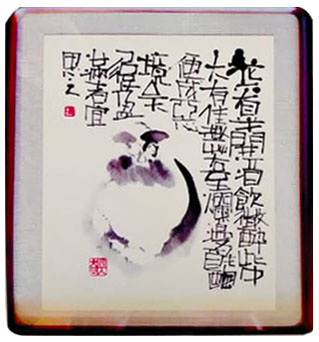 花看半開酒飲微醉此中
大有佳趣若至爛漫酕醄
便成惡
境矣
履盈
滿者宜
思之